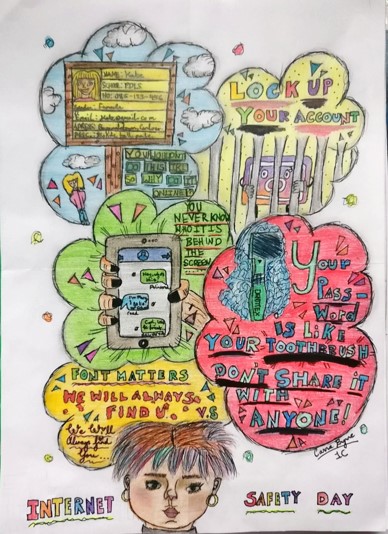 NAME: Kate
Gender: Female
YOU WOULDN'T
DO THIS IRL
SO WHY DO IT
ONLINE?
LOCK UP
YOUR ACCOUNT
YOU
NEVER KNOW
WHO IT IS
BEHIND
THE
SCREEN
Your
Pass-
Word
IS LIKE
YOUR TOOTHBRUSH
DON'T SHARE it
WITH
ANYONE!
FONT MATTERS
WE WILL ALWAYS
FIND U. V.S
We Will
Always find
you...
1C
INTERNET SAFETY DAY